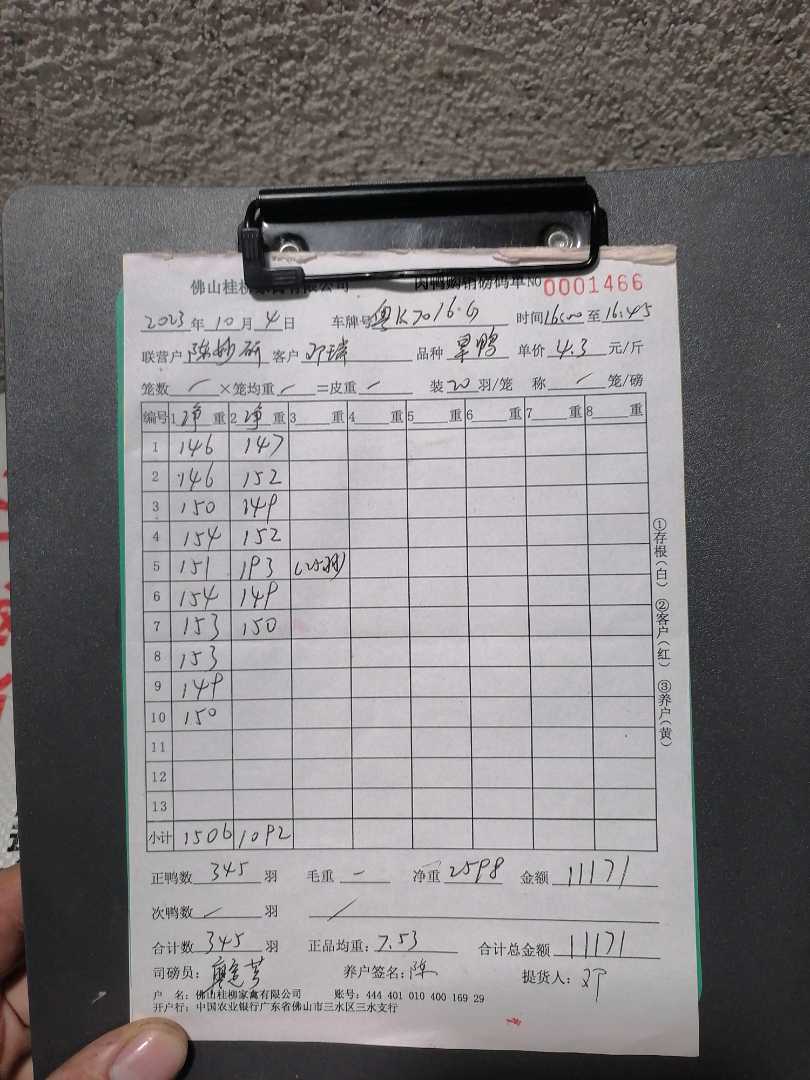 佛山桂柳家禽有限公司 肉鸭购销磅码单 NO 0001466
2023年10月4日 车牌号粤K7016.G 时间16:00至16:45
联营户陈妙研 客户邓璘 品种 单价4.3元/斤
笼数/×笼均重/=皮重- 装20羽/笼 称/笼/磅
编号 1净重 2净重 3重 4重 5重 6重 7重 8重
1 146 147
2 146 152
3 150 149
4 154 152
5 151 193 (25羽)
6 154 149
7 153 150
8 153
9 149
10 150
11
12
13
小计 1506 1092
正鸭数345羽 毛重- 净重2598 金额11171
次鸭数/羽 /
合计数345羽 正品均重:7.53 合计总金额11171
司磅员: 养户签名:陈 提货人:邓
户 名:佛山桂柳家禽有限公司 账号:444 401 010 400 169 29
开户行:中国农业银行广东省佛山市三水区三水支行
①存根(白) ②客户(红) ③养户(黄)